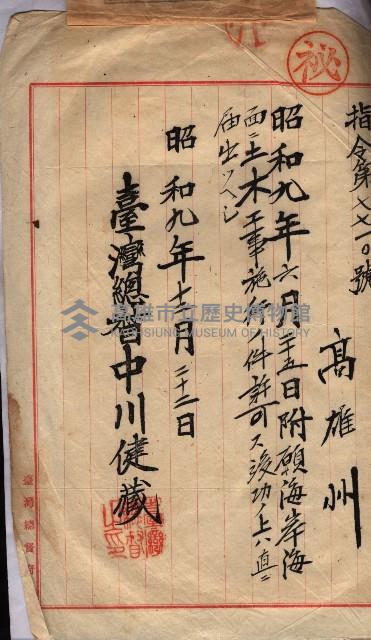 秘
指令第七七一〇號
高雄州
昭和九年六月二十五日附願海岸海
面ニ土木工事施行ノ件許可ス竣功ノ上ハ直ニ
届出ツヘシ
昭和九年十一月二十二日
臺灣總督中川健藏
臺灣總督之印
臺灣總督府
高雄市立歷史博物館
KAOHSIUNG MUSEUM OF HISTORY